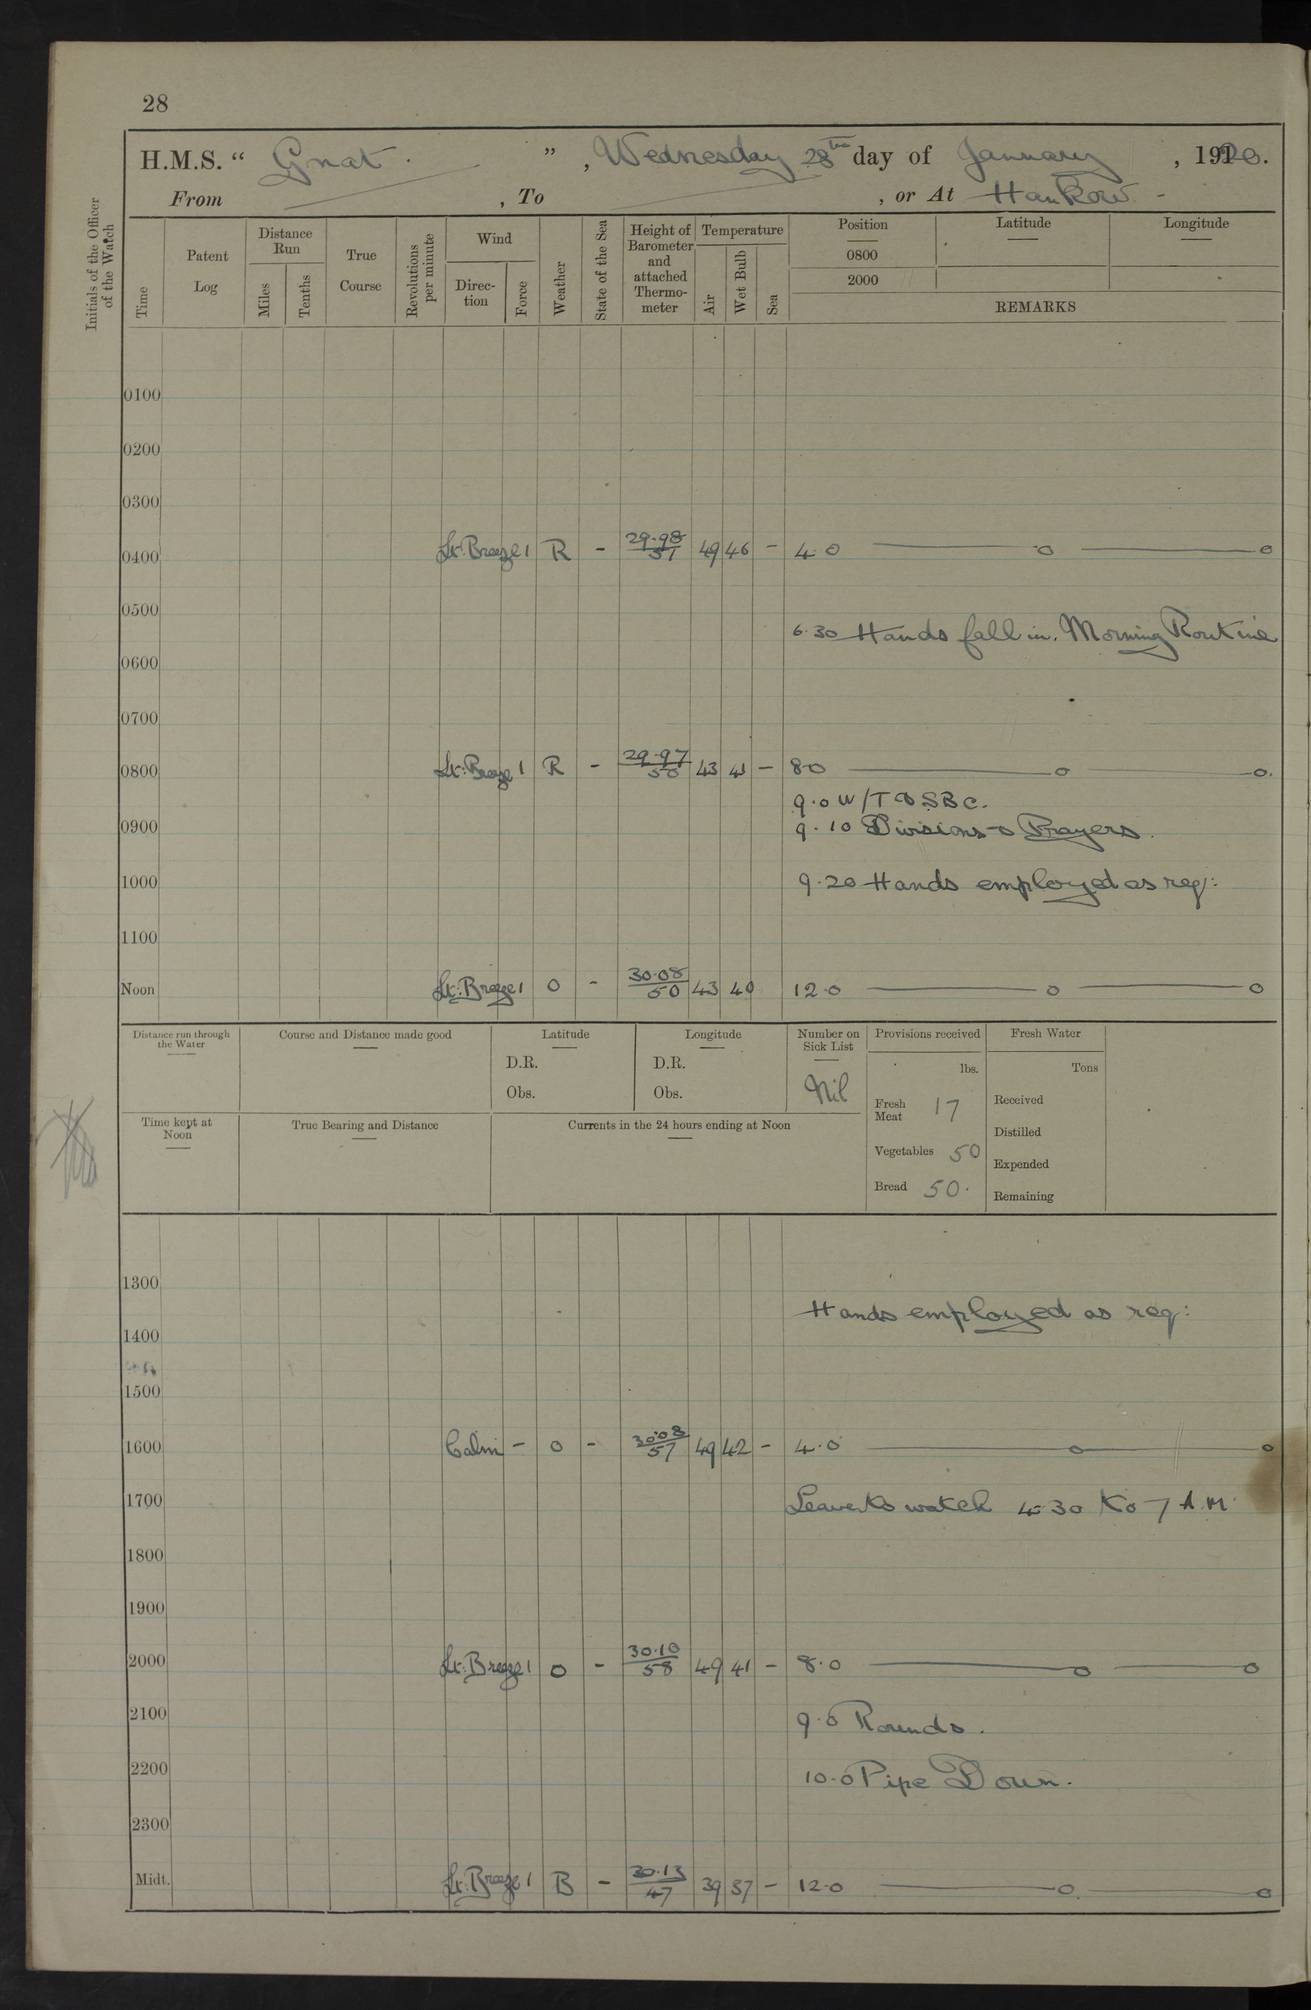 28
H.M.S. “ Gnat. ” , Wednesday 28th day of January , 1920.
From , To , or At Hankow -
Initials of the Officer of the Watch
Time
Patent Log
Distance Run
Miles
Tenths
True Course
Revolutions per minute
Wind
Direction
Force
Weather
State of the Sea
Height of Barometer and attached Thermometer
Temperature
Air
Wet Bulb
Sea
Position
0800
2000
Latitude
Longitude
REMARKS
0100
0200
0300
0400 Lt. Breeze 1 R - 29.98/51 49 46 - 4.0 o o
0500
6.30 Hands fall in. Morning Routine
0600
0700
0800 Lt: Breeze 1 R - 29.97/50 43 41 - 8.0 o o.
9.0 W/T SBC.
0900 9.10 Divisions & Prayers.
1000 9.20 Hands employed as req:
1100
Noon Lt: Breeze 1 O - 30.08/50 43 40 12.0 o o
Distance run through the Water
Course and Distance made good
Latitude
D.R.
Obs.
Longitude
D.R.
Obs.
Number on Sick List
Nil
Provisions received
lbs.
Fresh Meat 17
Vegetables 50
Bread 50.
Fresh Water
Tons
Received
Distilled
Expended
Remaining
Time kept at Noon
True Bearing and Distance
Currents in the 24 hours ending at Noon
1300
Hands employed as req:
1400
1500
1600 Calm - O - 30.08/57 49 42 - 4.0 o o
1700 Leave to watch 4.30 to 7 A.M.
1800
1900
2000 Lt: Breeze 1 O - 30.10/58 49 41 - 8.0 o o
2100 9.0 Rounds.
2200 10.0 Pipe Down.
2300
Midt. Lt: Breeze 1 B - 30.13/47 39 37 - 12.0 o o